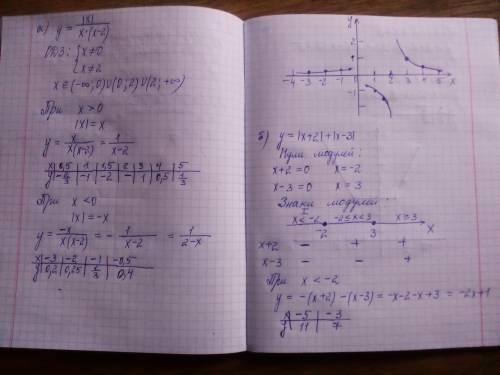 а) y = |x| / x·(x-2)
ОДЗ: { x ≠ 0
{ x ≠ 2
x ∈ (-∞; 0) ∪ (0; 2) ∪ (2; +∞)
При x > 0
|x| = x
y = x / x(x-2) = 1 / x-2
x | 0,5 | 1 | 1,5 | 2 | 3 | 4 | 5
y | -2/3 | -1 | -2 | - | 1 | 0,5 | 1/3
При x < 0
|x| = -x
y = -x / x(x-2) = - 1 / x-2 = 1 / 2-x
x | -3 | -2 | -1 | -0,5
y | 0,2 | 0,25 | 1/3 | 0,4
y
2
-4 -3 -2 -1 1 2 3 4 5 x
-1
б) y = |x+2| + |x-3|
Нули модулей:
x+2 = 0 x = -2
x-3 = 0 x = 3
Знаки модулей:
x < -2 -2 ≤ x < 3 x ≥ 3
-2 3 x
x+2 - + +
x-3 - - +
При x < -2
y = -(x+2) -(x-3) = -x-2-x+3 = -2x+1
x | -5 | -3
y | 11 | 7